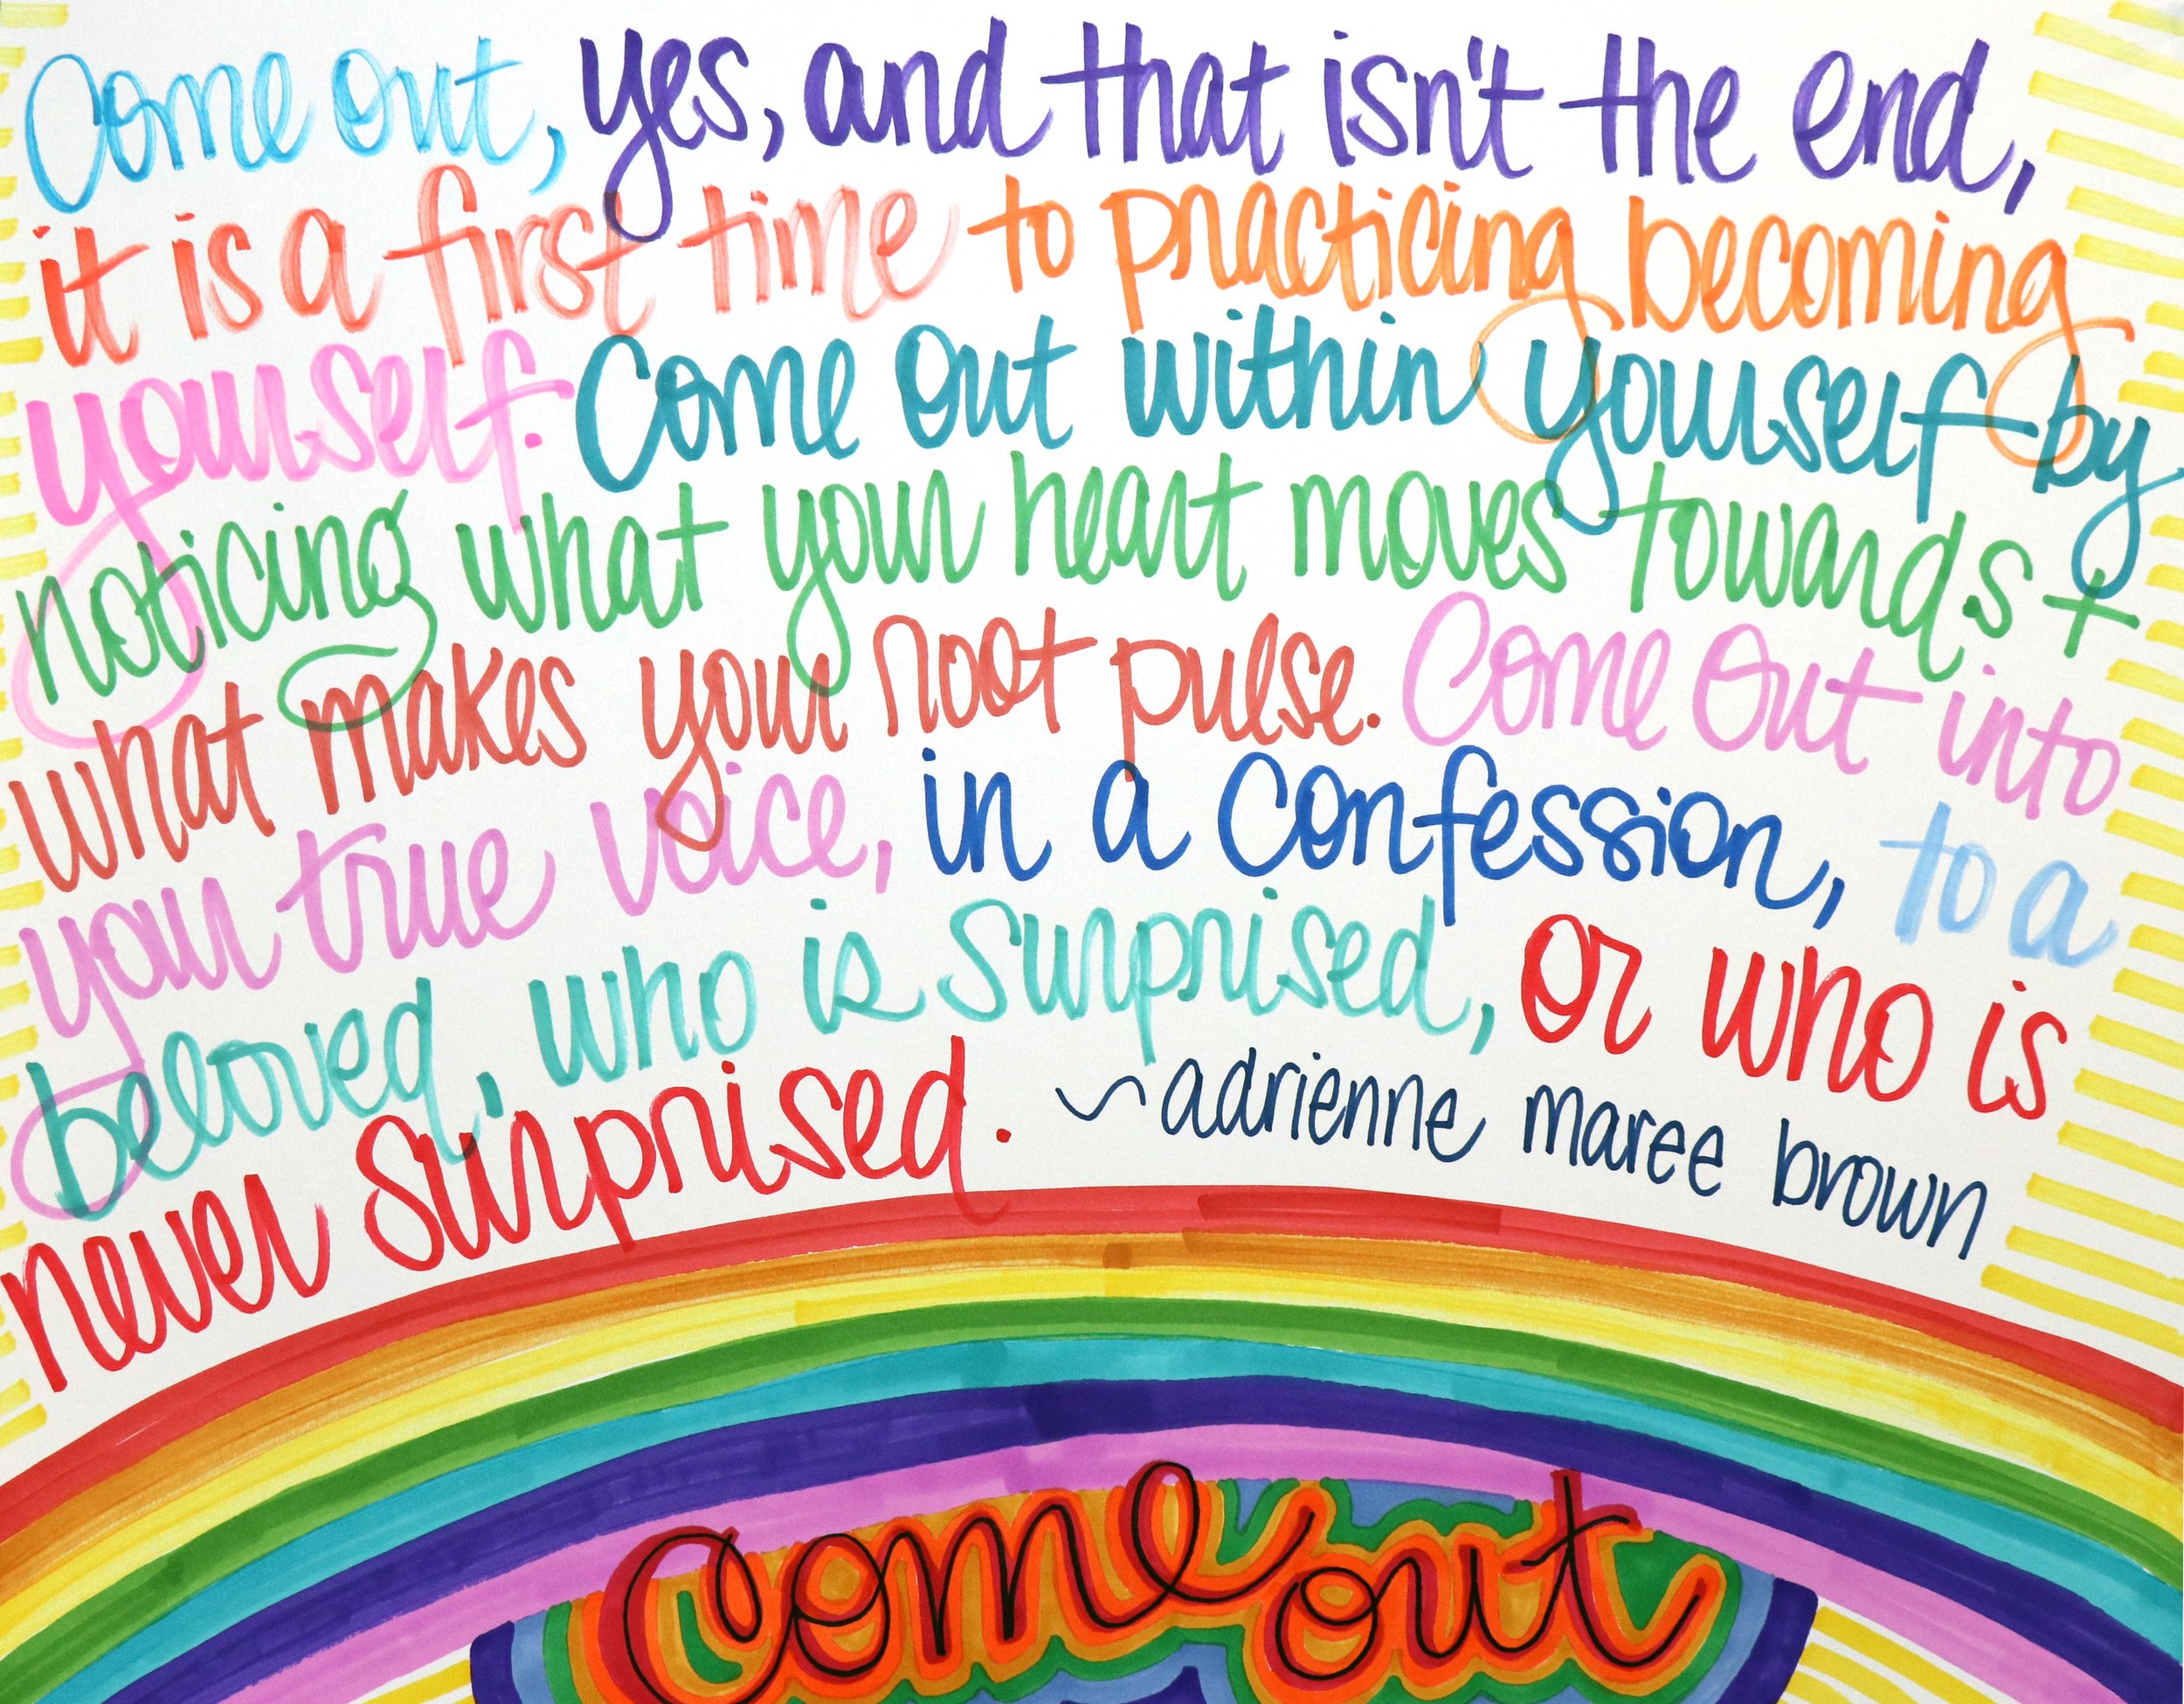 Come out, yes, and that isn't the end,
it is a first time to practicing becoming
yourself. Come out within yourself by
noticing what your heart moves towards +
what makes your root pulse. Come out into
your true voice, in a confession, to a
beloved, who is surprised, or who is
never surprised. ~adrienne maree brown
come out